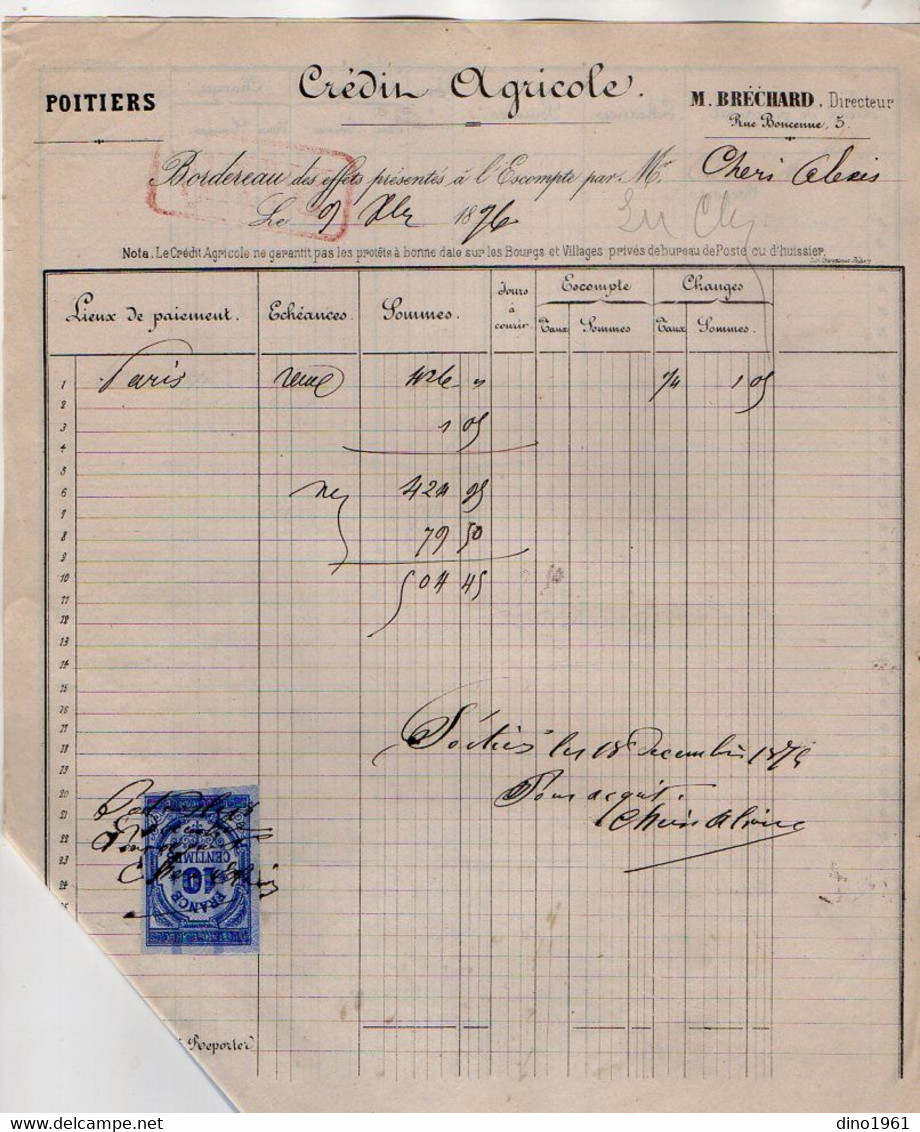 POITIERS
Crédit Agricole.
M. BRÉCHARD, Directeur
Rue Boncenne, 5.
Bordereau des effets présentés à l'Escompte par Mr. Cheri Alexis
Le 9 Xbr 1876
Nota. Le Crédit Agricole ne garantit pas les protêts à bonne date sur les Bourgs et Villages privés de bureau de Poste ou d'huissier.
Lieux de paiement. Echéances. Sommes. Jours à courir Escompte Changes
Taux Sommes Taux Sommes.
1 Paris 426 " 1/4 1 05
2
3 1 05
4
5
6 424 95
7
8 79 50
9
10 504 45
11
12
13
14
15
16
17
18
19
20
21
22
23
24
Poitiers le 18 Decembre 1876
Pour acquit.
Cheri Alexis
10
CENTIMES
FRANCE
Reporter
dino1961